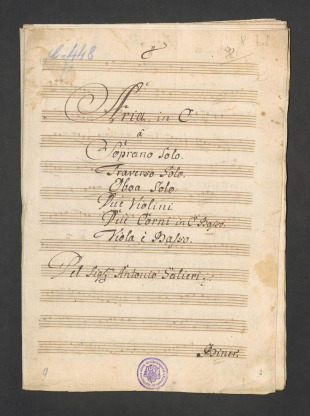 C-448
Aria in C
à
Soprano Solo.
Traverso Solo.
Oboa Solo
Due Violini
Due Corni in C Basso.
Viola è Basso.
Del Sigl Antonio Salieri.
Biner.